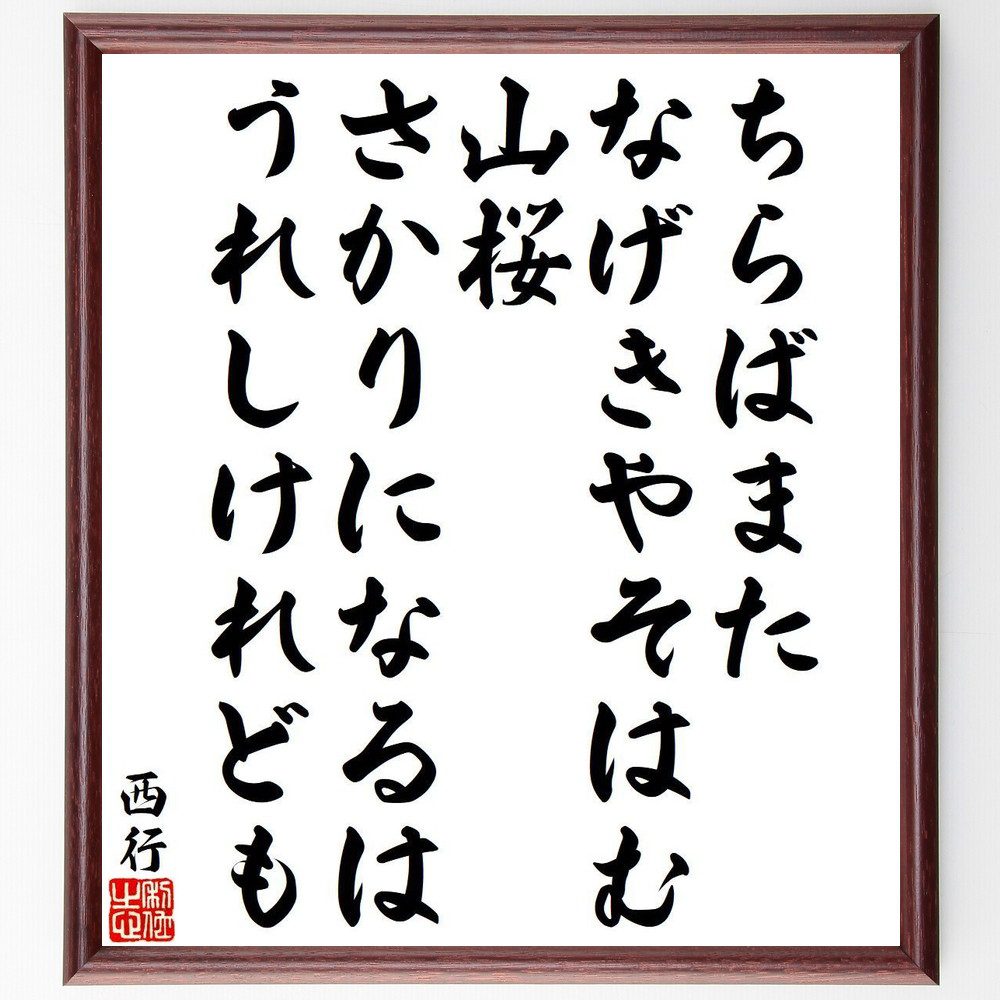 ちらばまた
なげきやそはむ
山桜
さかりになるは
うれしけれども
西行